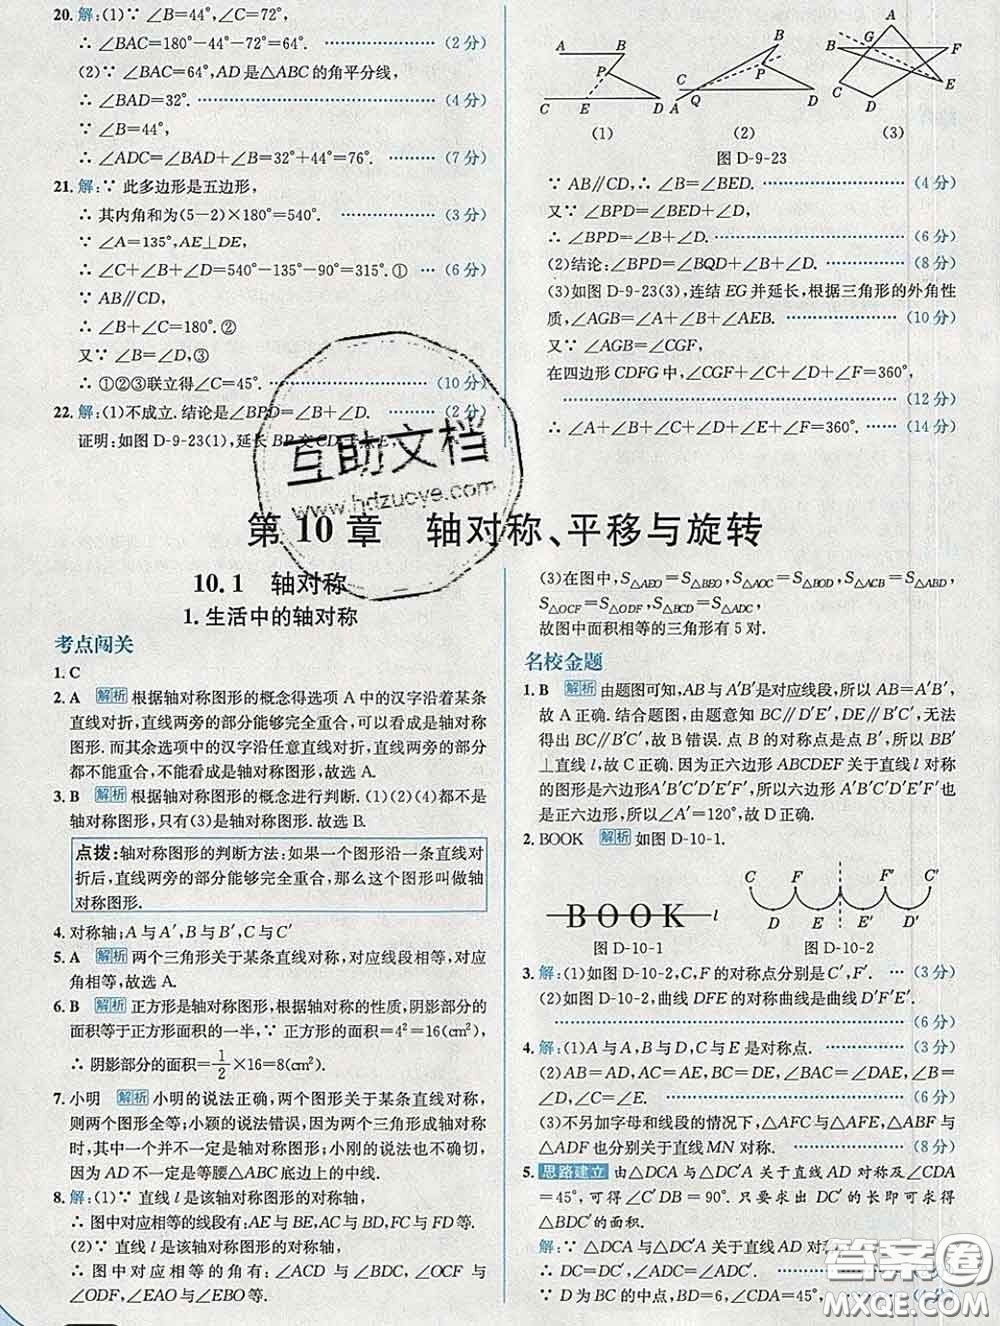 20. 解:(1)∵ ∠B=44°,∠C=72°,
∴ ∠BAC=180°-44°-72°=64°. (2分)
(2)∵ ∠BAC=64°,AD是△ABC的角平分线,
∴ ∠BAD=32°. (4分)
∵ ∠B=44°,
∴ ∠ADC=∠BAD+∠B=32°+44°=76°. (7分)
21. 解:∵ 此多边形是五边形,
∴ 其内角和为(5-2)×180°=540°. (3分)
∵ ∠A=135°,AE⊥DE,
∴ ∠C+∠B+∠D=540°-135°-90°=315°.① (6分)
∵ AB∥CD,
∴ ∠B+∠C=180°.②
又∵ ∠B=∠D,③
∴ ①②③联立得∠C=45°. (10分)
22. 解:(1)不成立.结论是∠BPD=∠B+∠D. (2分)
证明:如图 D-9-23(1),延长 BP交CD于点E,
A B P C E D
(1)
B C P A Q D
(2)
A B G F E C D
(3)
图 D-9-23
∵ AB∥CD,∴ ∠B=∠BED. (4分)
又∵ ∠BPD=∠BED+∠D,
∴ ∠BPD=∠B+∠D. (6分)
(2)结论:∠BPD=∠BQD+∠B+∠D. (8分)
(3)如图 D-9-23(3),连结 EG 并延长,根据三角形的外角性
质,∠AGB=∠A+∠B+∠AEB. (10分)
又∵ ∠AGB=∠CGF,
在四边形 CDFG 中,∠CGF+∠C+∠D+∠F=360°,
(12分)
∴ ∠A+∠B+∠C+∠D+∠E+∠F=360°. (14分)
互助文档
www.hdzuoye.com
第 10 章 轴对称、平移与旋转
10.1 轴对称
1.生活中的轴对称
考点闯关
1. C
2. A 解析 根据轴对称图形的概念得选项 A 中的汉字沿着某条
直线对折,直线两旁的部分能够完全重合,可以看成是轴对称
图形.而其余选项中的汉字沿任意直线对折,直线两旁的部分
都不能重合,不能看成是轴对称图形,故选 A.
3. B 解析 根据轴对称图形的概念进行判断.(1)(2)(4)都不是
轴对称图形,只有(3)是轴对称图形.故选 B.
点拨:轴对称图形的判断方法:如果一个图形沿一条直线对
折后,直线两旁的部分能够完全重合,那么这个图形叫做轴
对称图形.
4. 对称轴;A 与 A′,B 与 B′,C 与 C′
5. A 解析 两个三角形关于某条直线对称,对应线段相等,对应
角相等,故选 A.
6. B 解析 正方形是轴对称图形,根据轴对称的性质,阴影部分的
面积等于正方形面积的一半,∵ 正方形的面积=4²=16(cm²),
∴ 阴影部分的面积=1/2×16=8(cm²).
7. 小明 解析 小明的说法正确,两个图形关于某条直线对称,
则两个图形全等;小颖的说法错误,因为两个图形成轴对称
时,其中一个并不一定是轴对称图形;小刚的说法也不确切,
因为 AD 不一定是等腰△ABC 底边上的中线.
8. 解:(1)∵ 直线 l 是该轴对称图形的对称轴,
∴ 图中对应相等的线段有:AE 与 BE,AC 与 BD,FC 与 FD 等.
(2)∵ 直线 l 是该轴对称图形的对称轴,
∴ 图中对应相等的角有:∠ACD 与∠BDC,∠OCF 与
∠ODF,∠EAO 与∠EBO 等.
(3)在图中,S△AEO=S△BEO,S△AOC=S△BOD,S△ACB=S△ABD,
S△OCF=S△ODF,S△BCD=S△ADC,
故图中面积相等的三角形有 5 对.
名校金题
1. B 解析 由题图可知,AB 与 A′B′是对应线段,所以 AB=A′B′,
故 A 正确.结合题图,由题意知 BC∥D′E′,DE∥B′C′,无法
得出 BC∥B′C′,故 B 错误.点 B 的对称点是点 B′,所以 BB′
⊥直线 l,故 C 正确.因为正六边形 ABCDEF 关于直线 l 对称
的图形是六边形 A′B′C′D′E′F′,所以六边形 A′B′C′D′E′F′也
是正六边形,所以∠A′=120°,故 D 正确.
2. BOOK 解析 如图 D-10-1.
BOOK l
图 D-10-1
C F F′ C′
D E E′ D′
图 D-10-2
3. 解:(1)如图 D-10-2,C,F 的对称点分别是 C′,F′. (3分)
(2)如图 D-10-2,曲线 DFE 的对称曲线是曲线 D′F′E′.
(6分)
4. 解:(1)A 与 A,B 与 D,C 与 E 是对称点. (3分)
(2)AB=AD,AC=AE,BC=DE,∠BAC=∠DAE,∠B=
∠D,∠C=∠E. (6分)
(3)不另加字母和线段的情况下,△AFC 与△AFE,∠ABF 与
∠ADF 也分别关于直线 MN 对称. (8分)
5. 思路建立 由△DCA 与△DC′A 关于直线 AD 对称及∠CDA
=45°,可得∠C′DB=90°.只要求出 DC′的长即可求得
△BDC′的面积.
解:∵ △DCA 与△DC′A 关于直线 AD 对称,
∴ DC=DC′,∠ADC=∠ADC′.
∵ D 为 BC 的中点,BD=6,∠CDA=45°,
答案圈
MXQE.COM